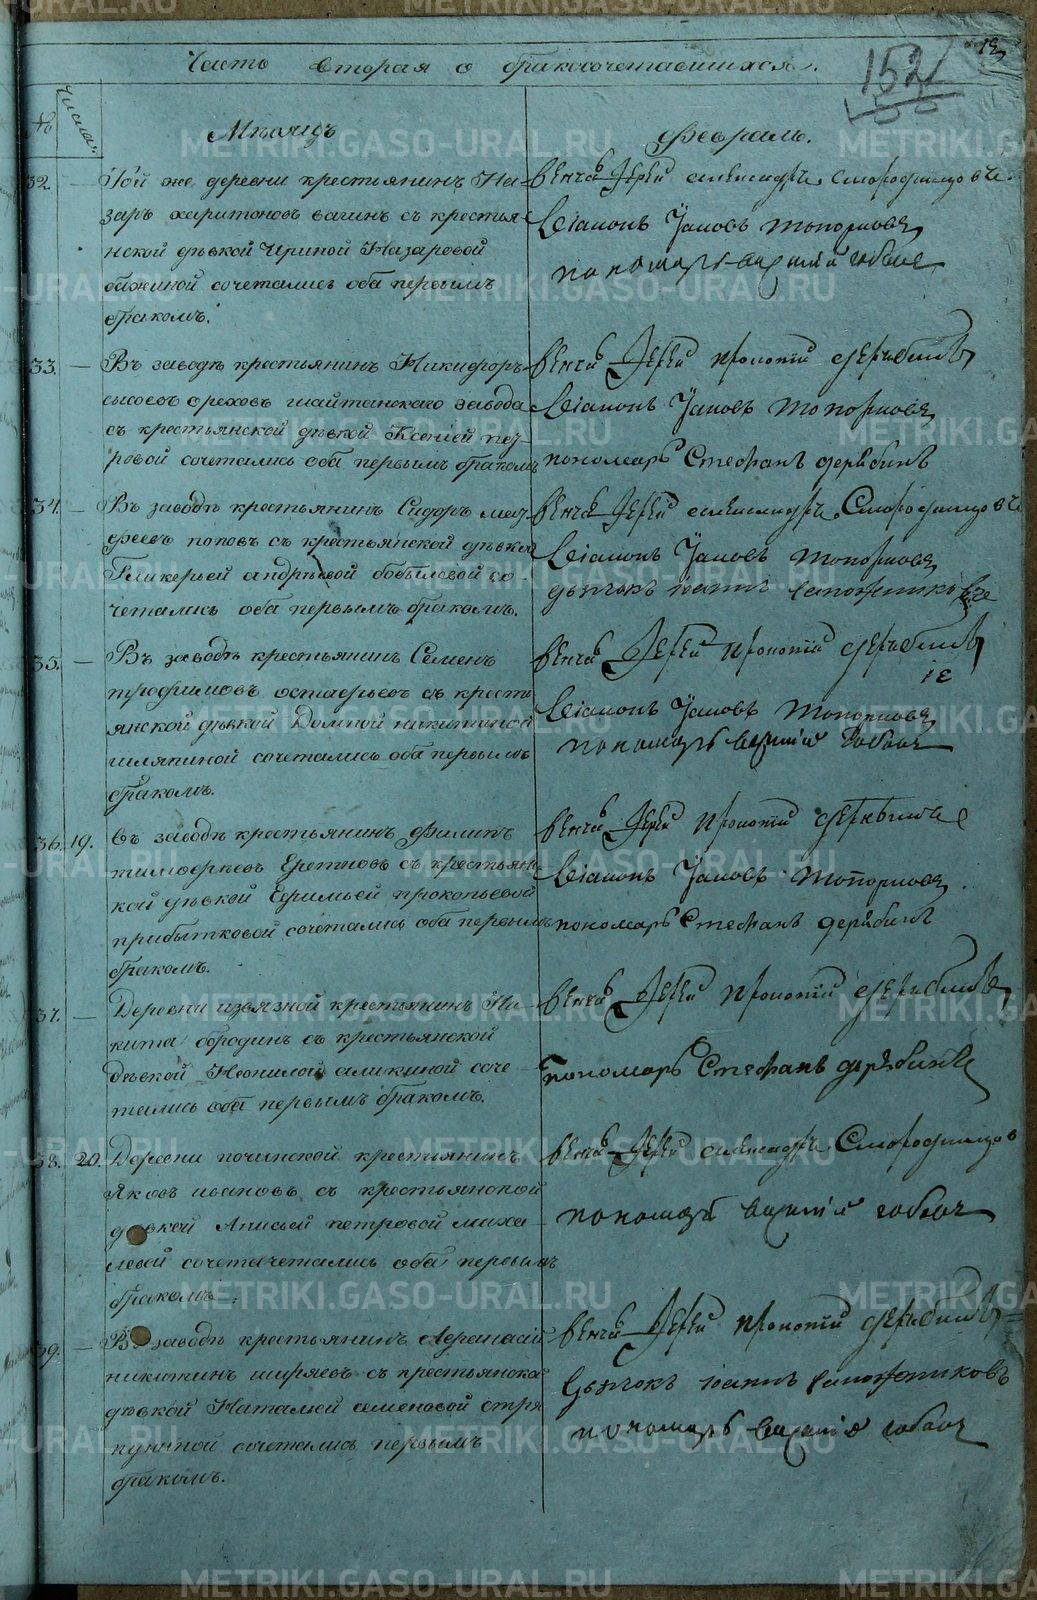 Часть вторая о бракосочетавшихся.
152
№
Числа.
Мѣсяцъ
Февраль.
32. — Той же деревни крестьянинъ На-
заръ харитоновъ вагинъ съ крестья
нской дѣвкой Ириной Назаровой
бажиной сочетались оба первымъ
бракомъ.
Венчалъ Іерей александръ Сторофинцовъ
Діаконъ Іаковъ топорковъ
пономарь василій
33. — Въ заводѣ крестьянинъ Никифоръ
сысоевъ ореховъ шайтанскаго завода
съ крестьянской дѣвкой Ксеніей пет-
ровой сочетались оба первымъ бракомъ
венчалъ Іерей прокопій дерябинъ
Діаконъ Іаковъ топорковъ
пономарь Стефанъ дерябинъ
34. — Въ заводѣ крестьянинъ Сидоръ мат
феевъ поповъ съ крестьянской дѣвкой
Гликерьей андрѣевой бобылевой со-
четались оба первымъ бракомъ.
венчалъ Іерей александръ
Діаконъ Іаковъ топорковъ
дьячокъ іоаннъ сапожниковъ
35. — Въ заводѣ крестьянинъ Семенъ
трофимовъ остафьевъ съ кресть
янской дѣвкой Домной никитиной
шляпиной сочетались оба первымъ
бракомъ.
венчалъ Іерей прокопій дерябинъ
Діаконъ Іаковъ топорковъ
пономарь василій
36. 19. Въ заводѣ крестьянинъ Филипъ
тимофеевъ съ крестьянс-
кой дѣвкой Ефимьей прокопьевой
прибытковой сочетались оба первымъ
бракомъ.
венчалъ Іерей прокопій дерябинъ
Діаконъ Іаковъ топорковъ
пономарь Стефанъ дерябинъ
37. — Деревни извязной крестьянинъ Ни-
кита бородинъ съ крестьянской
дѣвкой Неонилой аликиной соче-
тались оба первымъ бракомъ.
венчалъ Іерей прокопій дерябинъ
пономарь Стефанъ дерябинъ
38. 20. Деревни починской крестьянинъ
Яковъ ивановъ съ крестьянской
дѣвкой Анисьей петровой миха
левой сочетачетались оба первымъ
бракомъ.
венчалъ Іерей александръ
пономарь василій
39. — Въ заводѣ крестьянинъ Афанасій
никитинъ ширяевъ съ крестьянской
дѣвкой Натальей семеновой стря
пуниной сочетались первымъ
бракомъ.
венчалъ Іерей прокопій дерябинъ
Дьячокъ іоаннъ сапожниковъ
пономарь василій
METRIKI.GASO-URAL.RU